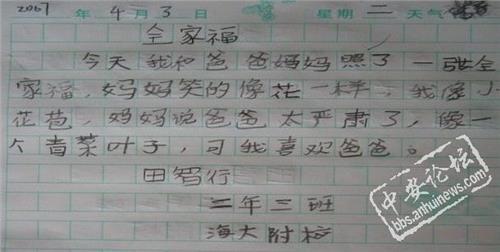 2007年4月3日 星期二 天气
全家福
今天我和爸爸妈妈照了一张全
家福,妈妈笑的像花一样,我像小
花苞,妈妈说爸爸太严肃了,像一
个青菜叶子,可我喜欢爸爸。
田智行
二年三班
海大附校
中安论坛
bbs.anhuinews.com